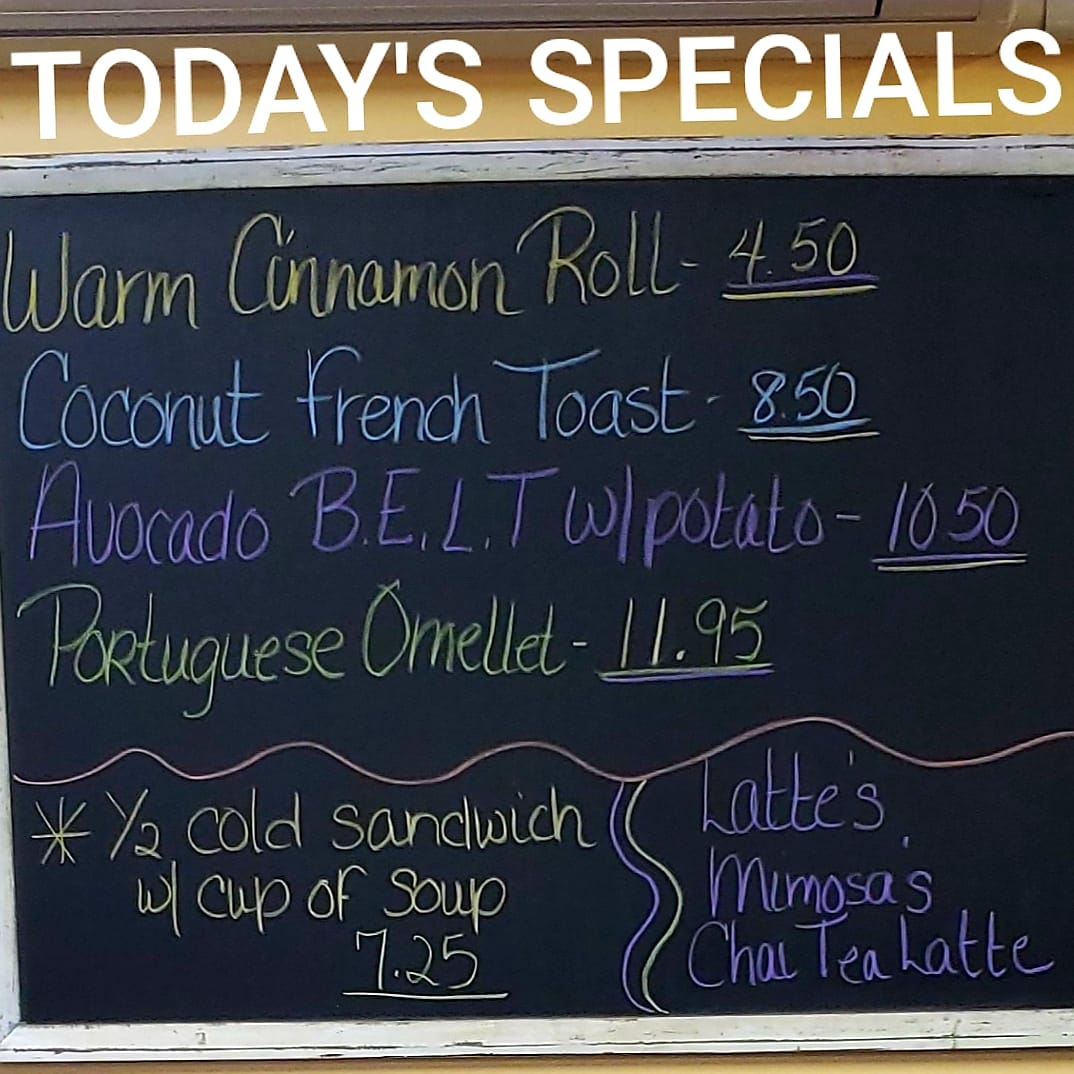 TODAY'S SPECIALS
Warm Cinnamon Roll - 4.50
Coconut French Toast - 8.50
Avocado B.E.L.T w/potato - 10.50
Portuguese Omellet - 11.95
* 1/2 cold sandwich
w/ cup of soup
7.25
Latte's
Mimosa's
Chai Tea Latte